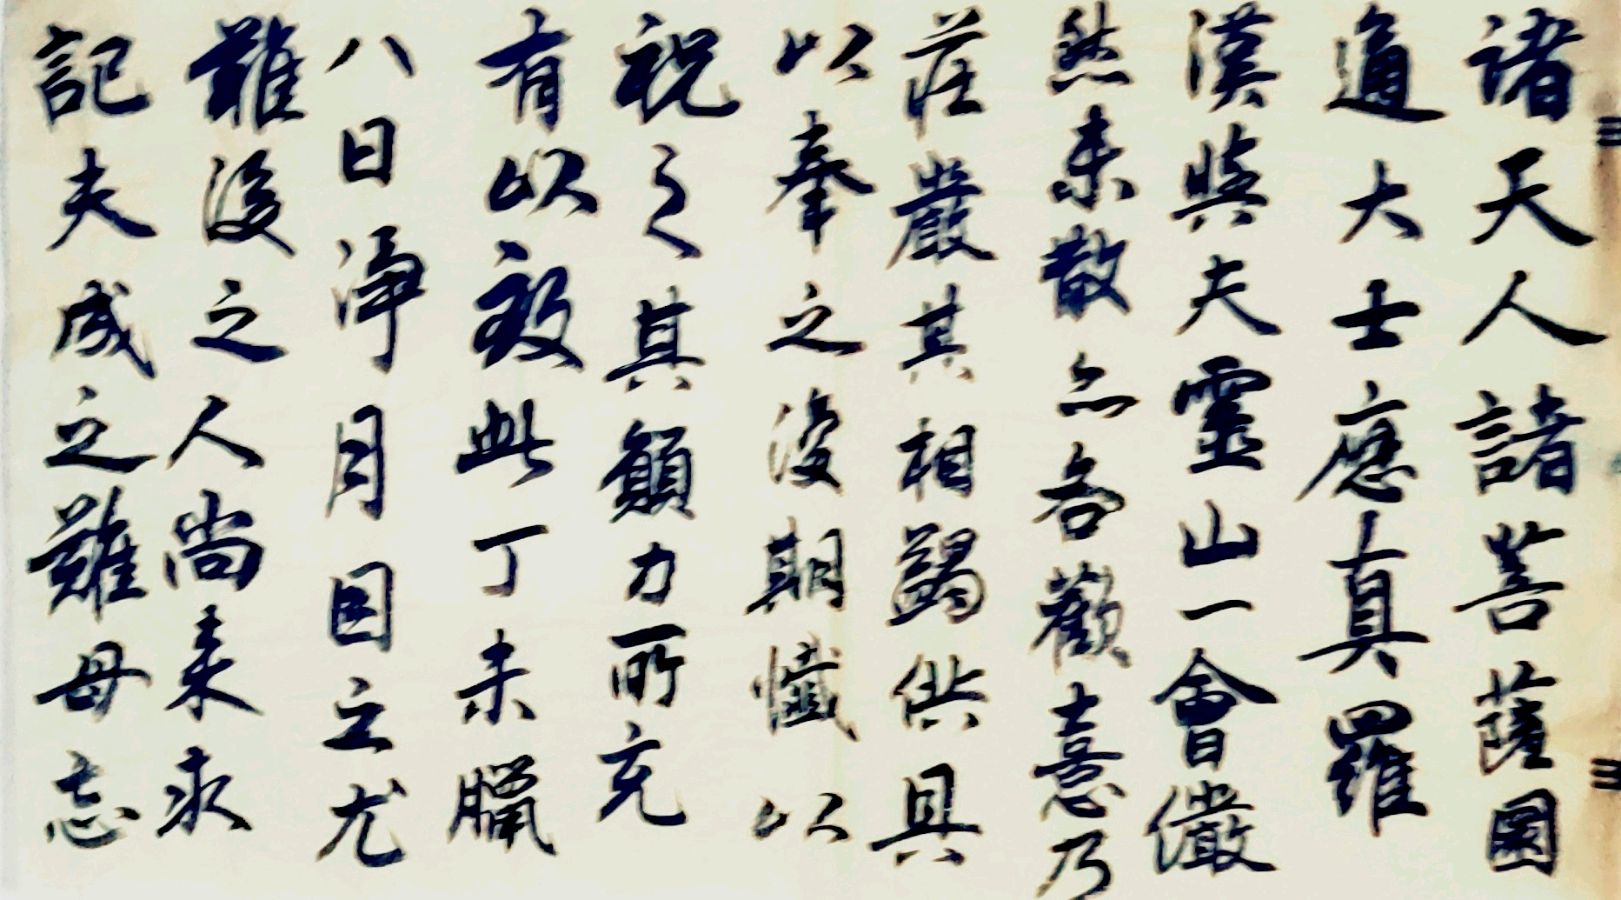 諸天人諸菩薩圓
通大士應真羅
漢與夫靈山一會儼
然未散亦各歡憙乃
莊嚴其相蠲供具
以奉之後期懺以
祝之其願力所充
有以致此丁未臘
八日淨月因立尤
難後之人尚来求
記夫成之難毋忘